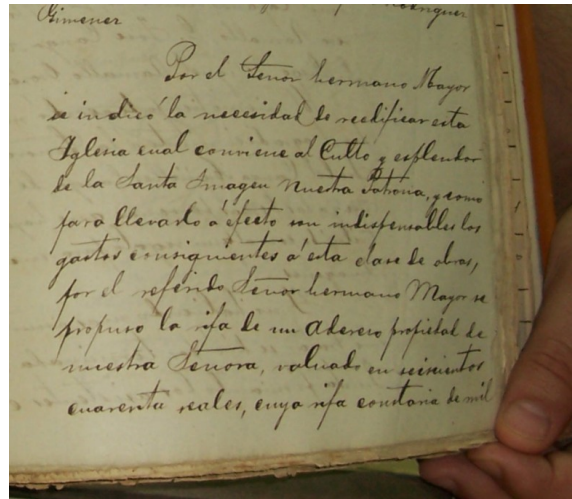 Gimenez
Por el Señor hermano Mayor
se indicó la necesidad de reedificar esta
Iglesia cual conviene al Culto y esplendor
de la Santa Imagen nuestra Patrona, y como
para llevarlo á efecto son indispensables los
gastos consiguientes á esta clase de obras,
por el referido Señor hermano Mayor se
propuso la rifa de un aderezo propiedad de
nuestra Señora, valuado en seiscientos
cuarenta reales, cuya rifa constaria de mil